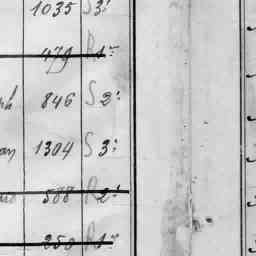 1035 S 3:
479 R 1:
846 S 2:
1304 S 3:
588 R 2:
250 R 1: